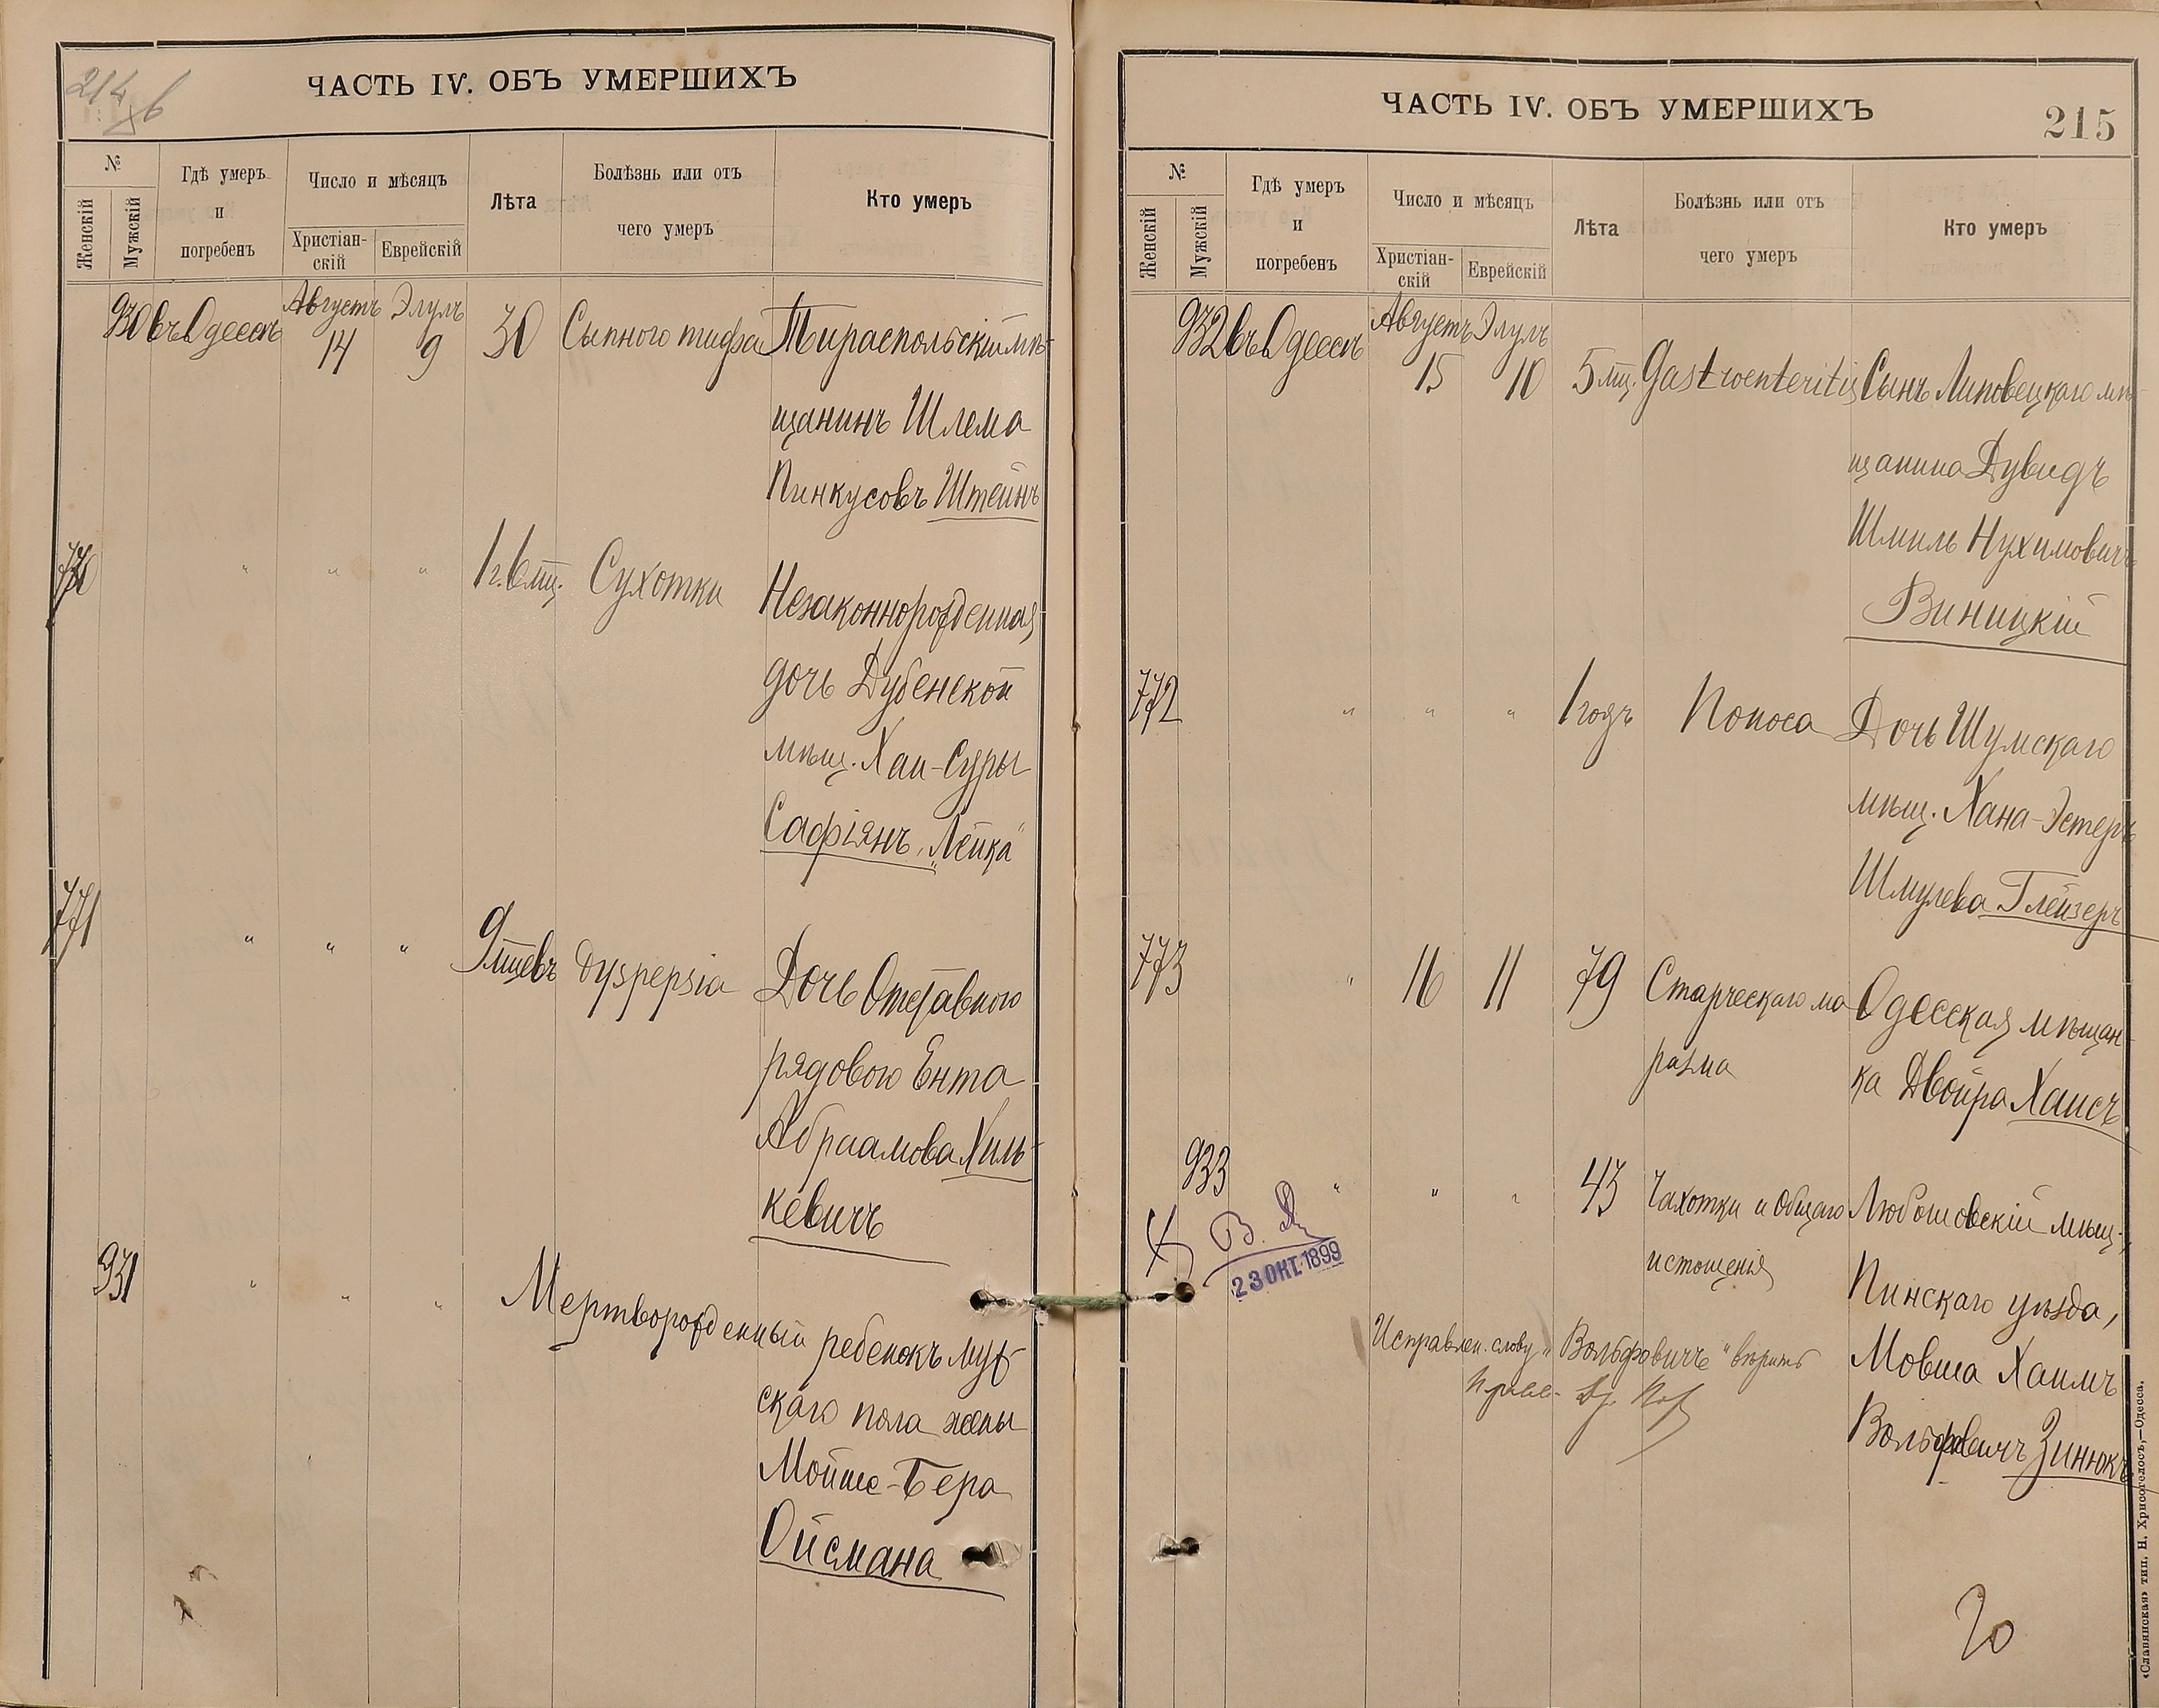 214 об
ЧАСТЬ IV. ОБЪ УМЕРШИХЪ
№
Женскій
Мужскій
Гдѣ умеръ
и
погребенъ
Число и мѣсяцъ
Христіан-
скій
Еврейскій
Лѣта
Болѣзнь или отъ
чего умеръ
Кто умеръ
930 въ Одессѣ Августъ 14 Элулъ 9 30 Сыпного тифа Тираспольскій мѣ-
щанинъ Шлема
Пинкусовъ Штейнъ
770 " " " 1 г. 6 мц. Сухотки Незаконнорожденная
дочь Дубенской
мѣщ. Хаи-Суры
Сафіянъ, „Лейка"
771 " " " 9 мцевъ Dyspepsia Дочь Отставного
рядового Ента
Абраамова Хиль-
кевичъ
931 " " " Мертворожденный ребенокъ муж-
скаго пола жены
Мойше-Бера
Ойсмана
ЧАСТЬ IV. ОБЪ УМЕРШИХЪ
215
№
Женскій
Мужскій
Гдѣ умеръ
и
погребенъ
Число и мѣсяцъ
Христіан-
скій
Еврейскій
Лѣта
Болѣзнь или отъ
чего умеръ
Кто умеръ
932 въ Одессѣ Августъ 15 Элулъ 10 5 мц. Gastroenteritis Сынъ Липовецкаго мѣ-
щанина Дувидъ
Шмиль Нухимовичъ
Виницкій
772 " " " 1 годъ Поноса Дочь Шумскаго
мѣщ. Хана-Эстеръ
Шмулева Глейзеръ
773 " 16 11 79 Старческаго ма Одесская мѣщан-
разма ка Двойра Хаисъ
933 " " " 43 Чахотки и Общаго Любошовскій мѣщ.,
истощенія Пинскаго уѣзда,
Мовша Хаимъ
Вольфовичъ Зинюкъ
23 ОКТ. 1899
Исправлен. слову „Вольфовичъ" вѣрить
20
«Славянская» тип. Н. Хрисогелосъ,—Одесса.